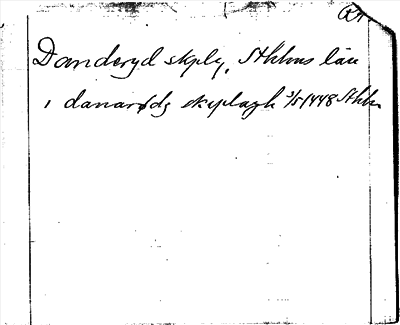 Danderyd skplg, Sthlms län
i danarødz skeplagh 3/5 1448 Sthlm